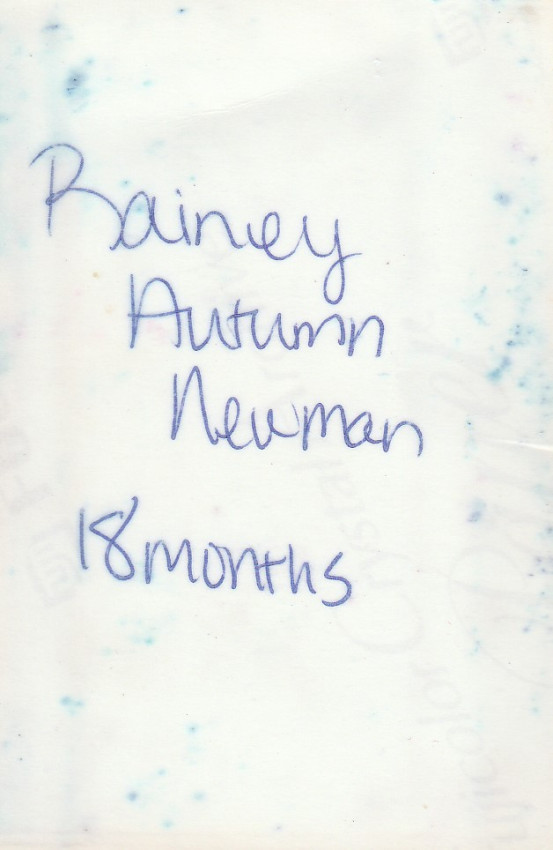 Rainey
Autumn
Newman
18 months